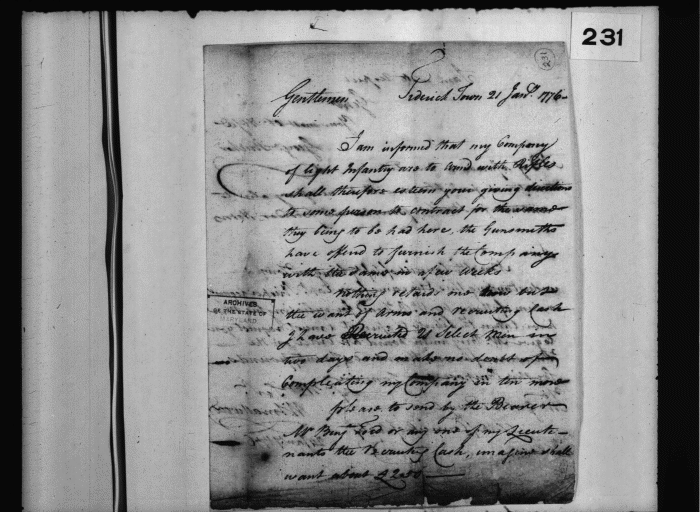 231
231
Gentlemen Frderick Town 21 Jan.y 1776
I am informed that my Company
of light Infantry are to Armd with Rifles
shall therefore esteem your giving directions
to some person to contract for the same
they being to be had here, the Gunsmiths
have offerd to furnish the Company
with the same in a few weeks
nothing retards me but
the want of Arms and recruiting Cash
I have Recruited 21 Select Men in
two days and make no doubt of
Compleating my Company in ten more
please to send by the Bearer
Mr Benj or any one of my Lieute-
nants the Recruiting Cash, imagine shall
want about £250
ARCHIVES
OF THE STATE OF
MARYLAND